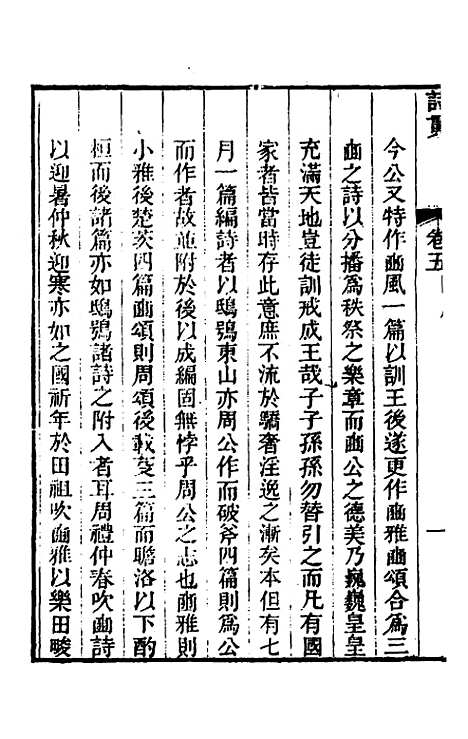 詩貫
卷五
一
今公又特作豳風一篇以訓王後遂更作豳雅豳頌合為三
豳之詩以分播為秩祭之樂章而豳公之德美乃巍巍皇皇
充滿天地豈徒訓戒成王哉子子孫孫勿替引之而凡有國
家者皆當時存此意庶不流於驕奢淫逸之漸矣本但有七
月一篇編詩者以鴟鴞東山亦周公作而破斧四篇則為公
而作者故並附於後以成編固無悖乎周公之志也豳雅則
小雅後楚茨四篇豳頌則周頌後載芟三篇而瞻洛以下酌
桓而後諸篇亦如鴟鴞諸詩之附入者耳周禮仲春吹豳詩
以迎暑仲秋迎寒亦如之國祈年於田祖吹豳雅以樂田畯